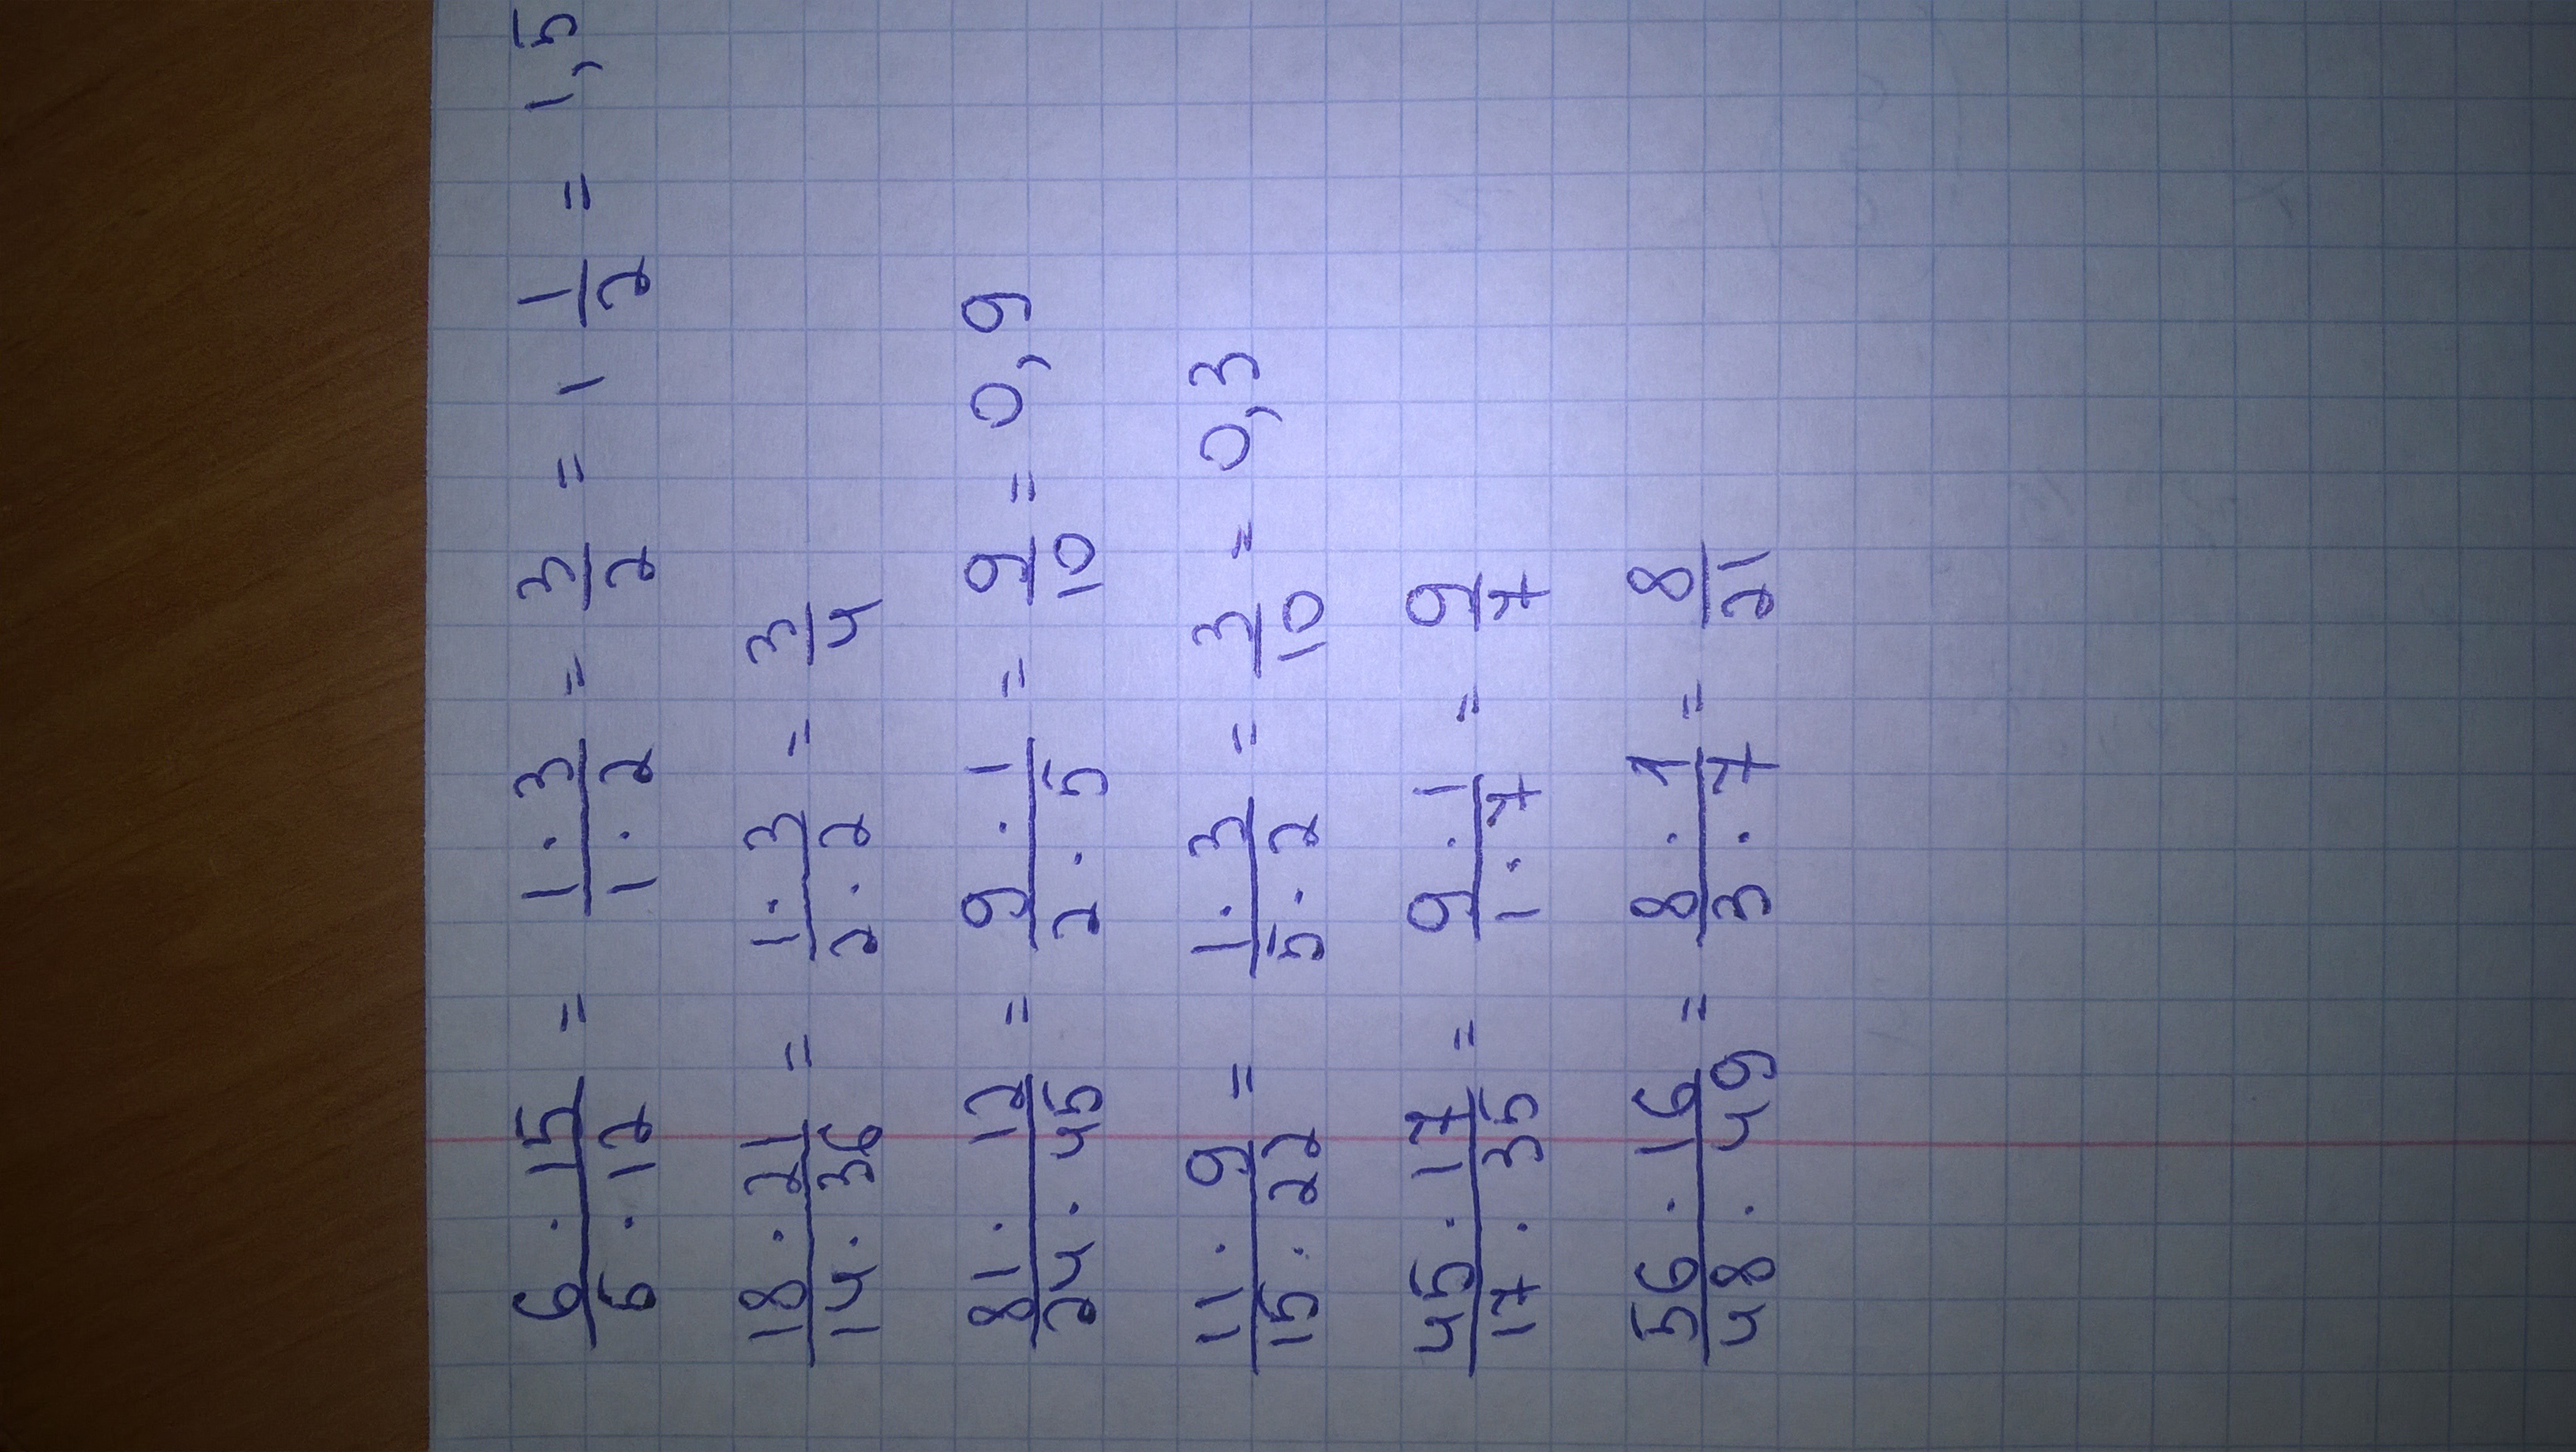 6 · 15 / 5 · 12 = 1 · 3 / 1 · 2 = 3/2 = 1 1/2 = 1,5
18 · 21 / 14 · 36 = 1 · 3 / 2 · 2 = 3/4
81 · 12 / 24 · 45 = 9 · 1 / 2 · 5 = 9/10 = 0,9
11 · 9 / 15 · 22 = 1 · 3 / 5 · 2 = 3/10 = 0,3
45 · 17 / 17 · 35 = 9 · 1 / 1 · 7 = 9/7
56 · 16 / 48 · 49 = 8 · 1 / 3 · 7 = 8/21